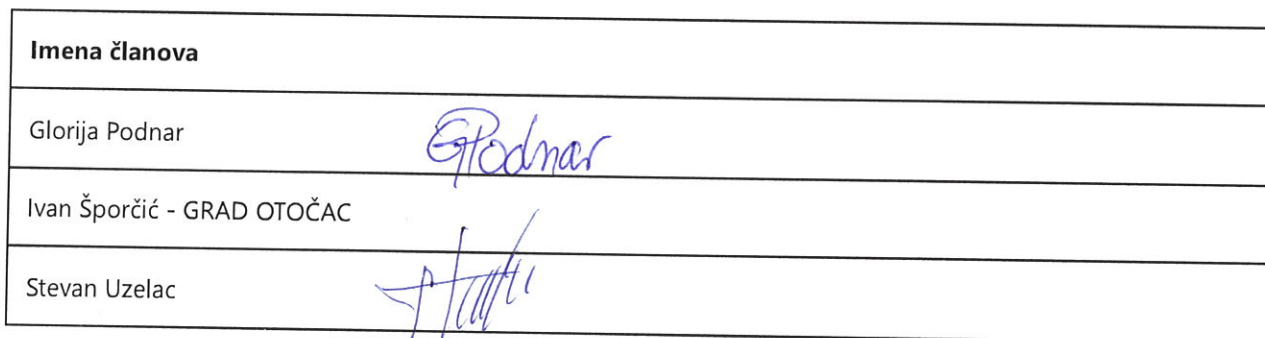 Imena članova
Glorija Podnar
GPodnar
Ivan Šporčić - GRAD OTOČAC
Stevan Uzelac